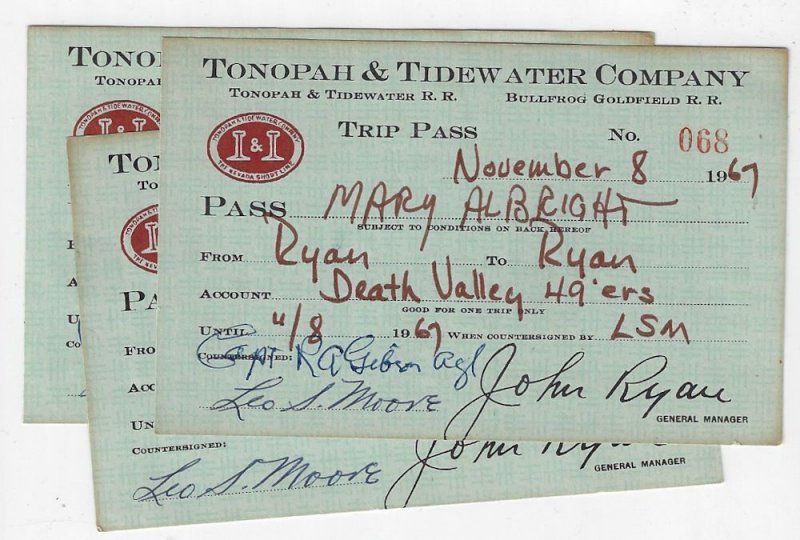 TONOPAH & TIDEWATER COMPANY
TONOPAH & TIDEWATER R. R. BULLFROG GOLDFIELD R. R.
TONOPAH & TIDEWATER COMPANY
T & T
THE NEVADA SHORT LINE
TRIP PASS NO. 068
November 8 1967
PASS MARY ALBRIGHT
SUBJECT TO CONDITIONS ON BACK HEREOF
FROM Ryan TO Ryan
ACCOUNT Death Valley 49'ers
GOOD FOR ONE TRIP ONLY
UNTIL 11/8 1967 WHEN COUNTERSIGNED BY LSM
COUNTERSIGNED: Capt R A Gibson
Leo S. Moore John Ryan
GENERAL MANAGER
TONOPAH
TONOPAH
TO
TO
PA
FRO
ACC
UN
COUNTERSIGNED:
Leo S. Moore John Ryan
GENERAL MANAGER